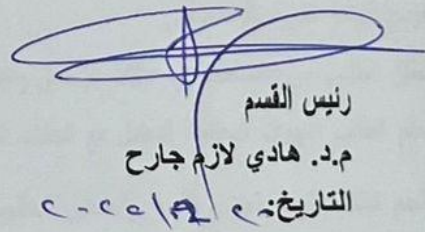 رئيس القسم
م.د. هادي لازم جارح
التاريخ: